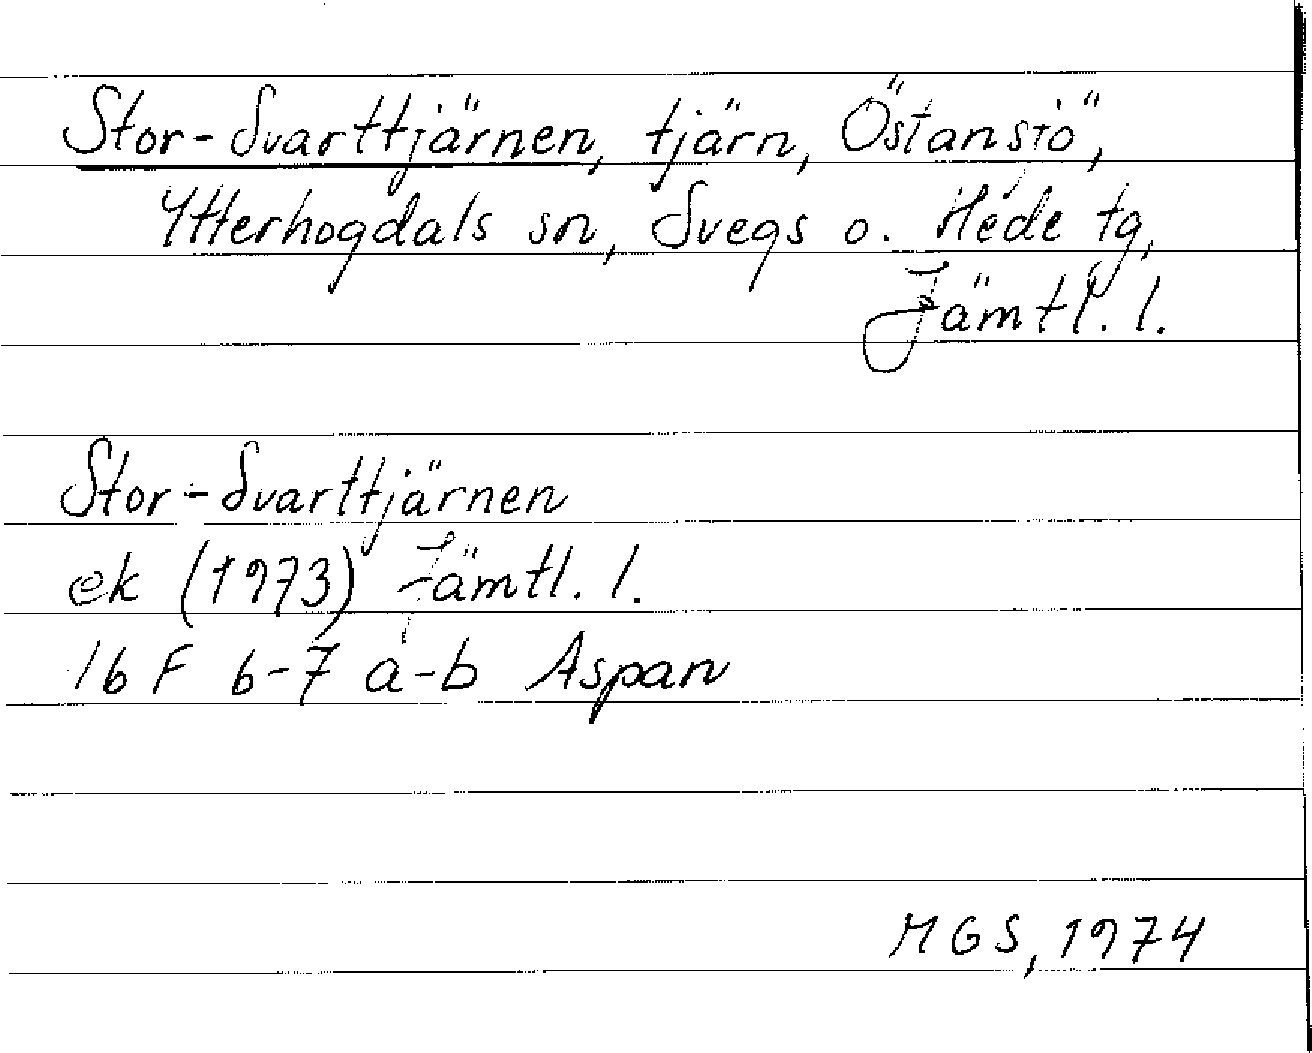 Stor-Svarttjärnen, tjärn, Östansjö,
Ytterhogdals sn, Svegs o. Hede tg,
Jämtl. l.
Stor-Svarttjärnen
ek (1973) Jämtl. l.
16 F 6-7 a-b Aspan
MGS, 1974